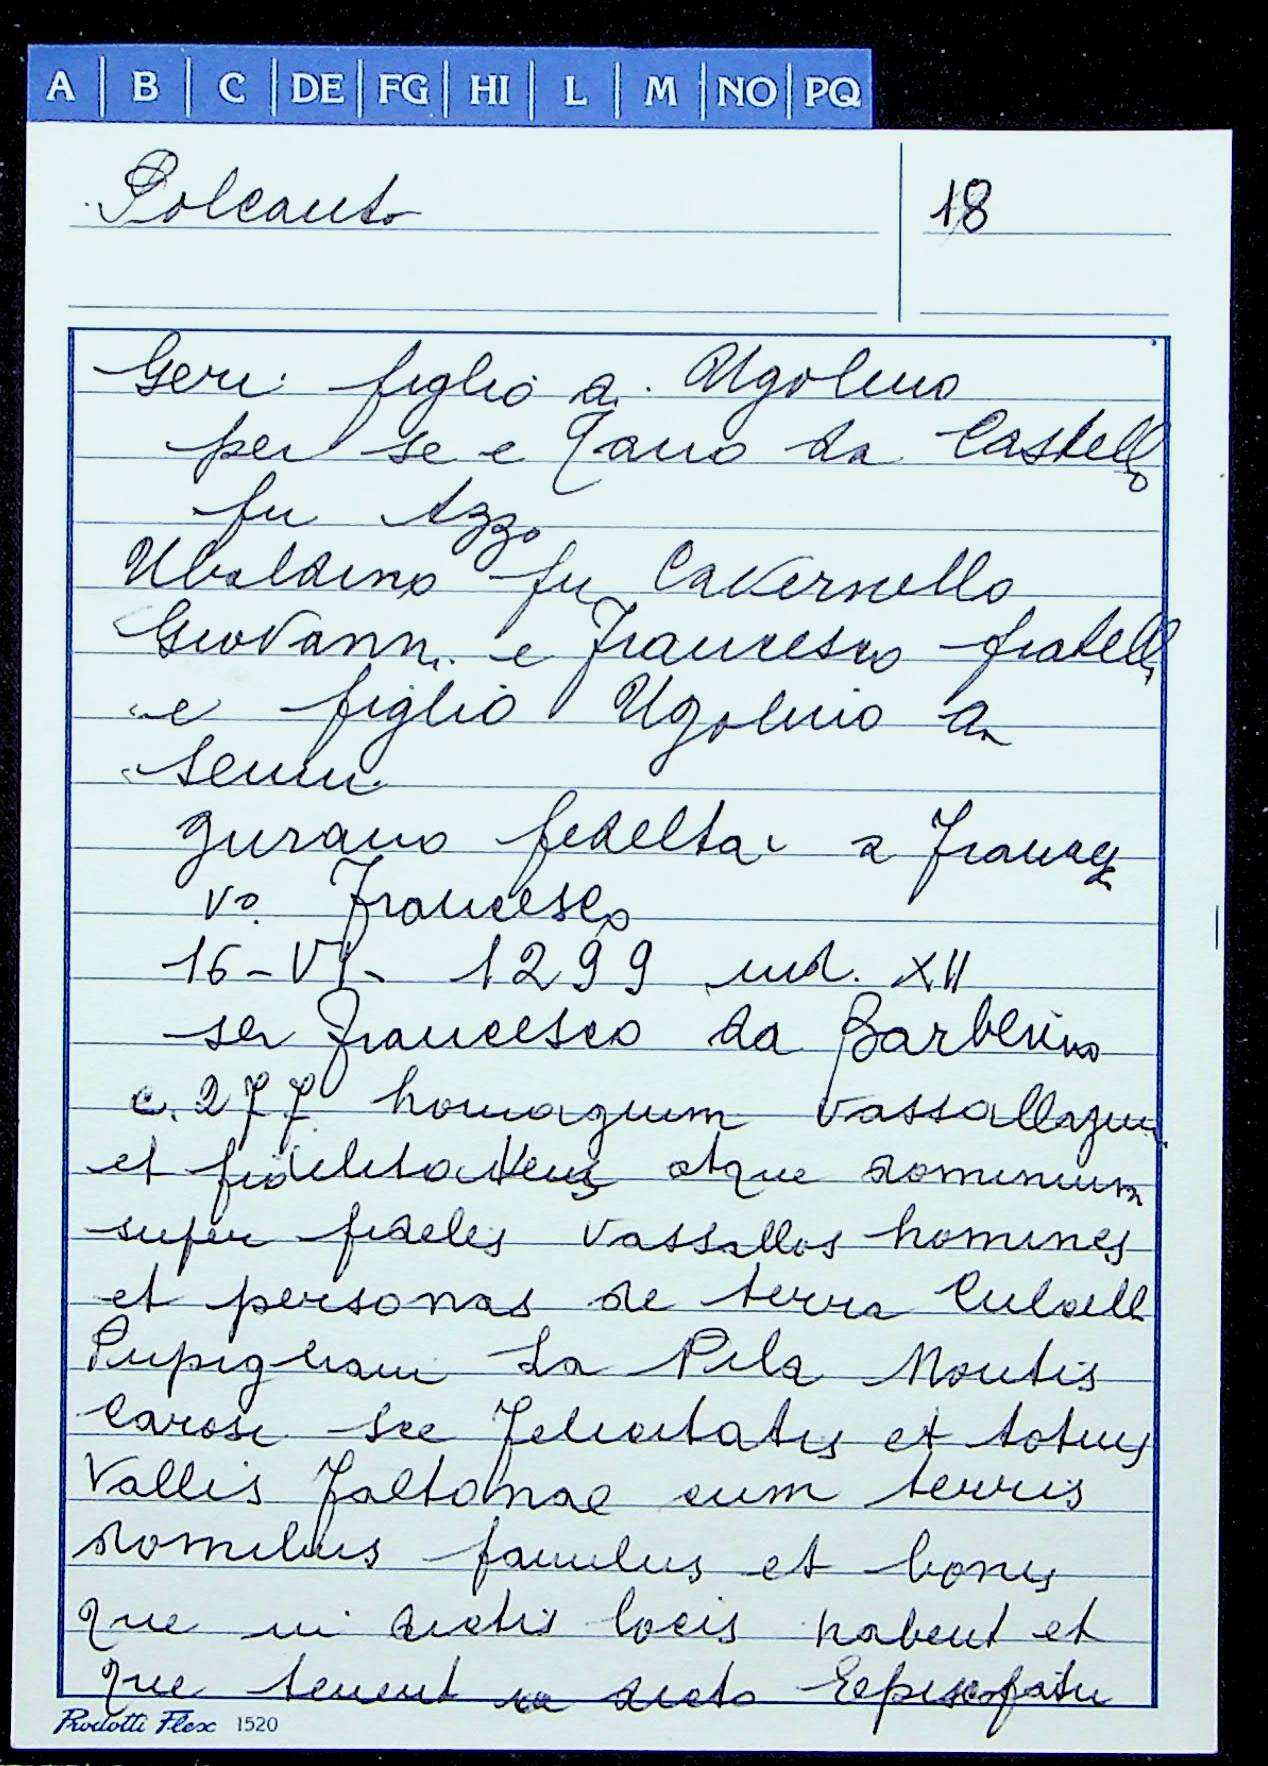 A B C DE FG HI L M NO PQ
Polcanto
18
Geri figlio d. Ugolino
per se e Vano da Castello
fu Azzo
Ubaldino fu Cavernello
Giovanni e Francesco fratelli
e figlio Ugolino d.
giurano fedelta a
vo Francesco
16-VI- 1299 ind. XII
ser Francesco da Barberino
c. 277 homagium vassallagium
et fidelitatem atque dominium
super fideles vassallos homines
et personas de terra
Pupigliani La Pila Montis
Carosi Sce Felicitatis et totius
Vallis Faltonae cum terris
domibus famulis et bonis
que in dictis locis habent et
que tenent a dicto Eepiscopatu
Prodotti Flex 1520